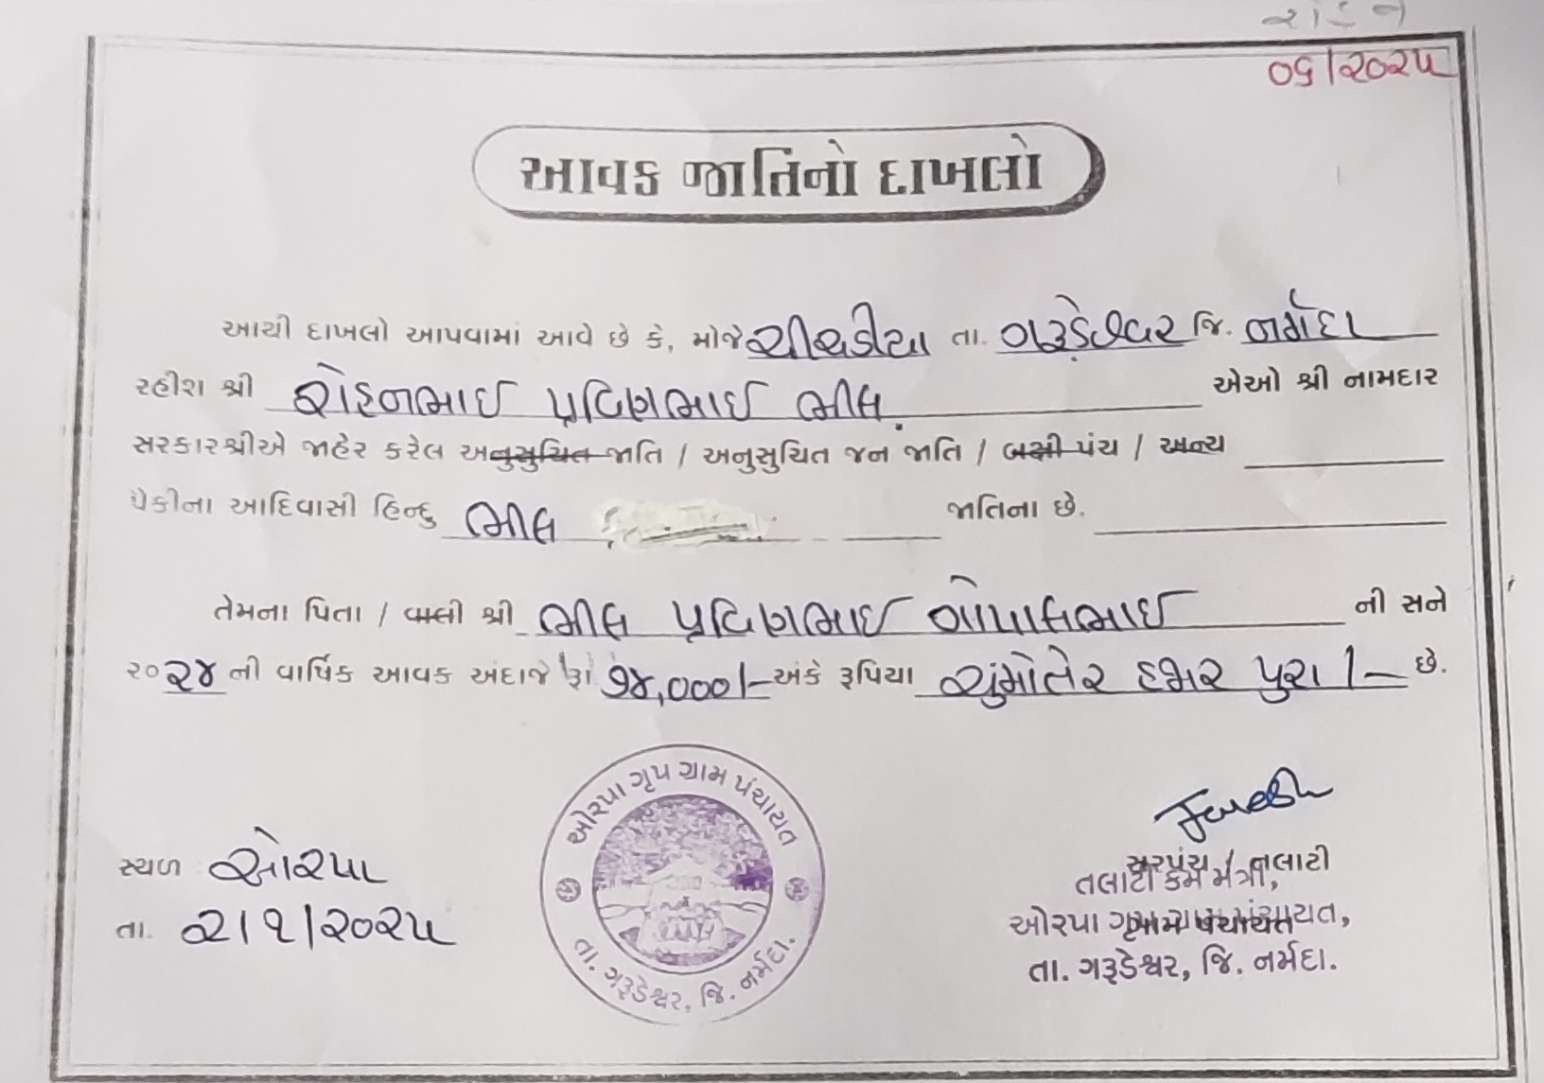 ૦૬/૨૦૨૫
આવક જાતિનો દાખલો
આથી દાખલો આપવામાં આવે છે કે, મોજે ચીચડીયા તા. ગરૂડેશ્વર જિ. નર્મદા
રહીશ શ્રી રોહનભાઈ પ્રવિણભાઈ ભીલ એઓ શ્રી નામદાર
સરકારશ્રીએ જાહેર કરેલ અનુસુચિત જાતિ / અનુસુચિત જન જાતિ / બક્ષી પંચ / અન્ય
પૈકીના આદિવાસી હિન્દુ ભીલ જાતિના છે.
તેમના પિતા / વાલી શ્રી ભીલ પ્રવિણભાઈ ગોપાલભાઈ ની સને
૨૦૨૪ ની વાર્ષિક આવક અંદાજે રૂા ૭૪,૦૦૦/- અંકે રૂપિયા ચુંમોતેર હજાર પુરા /- છે.
ઓરપા ગૃપ ગ્રામ પંચાયત
તા. ગરૂડેશ્વર, જિ. નર્મદા.
સ્થળ ઓરપા
તા. ૨/૧/૨૦૨૫
સરપંચ / તલાટી
તલાટી કમ મંત્રી,
ઓરપા ગૃપ ગ્રામ પંચાયત,
તા. ગરૂડેશ્વર, જિ. નર્મદા.